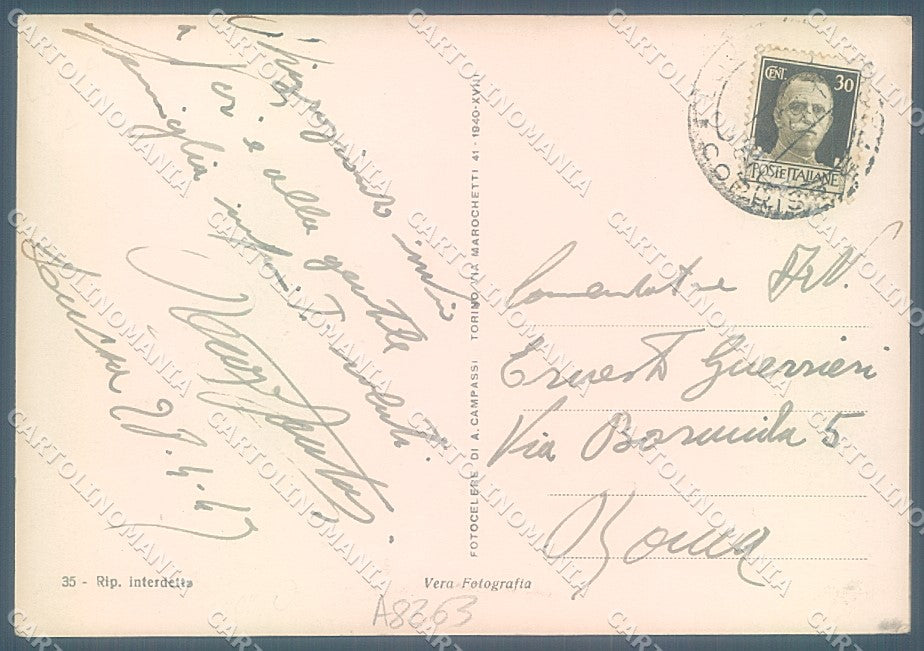 Ringraziando invio
a Voi e alla gentile
famiglia infiniti saluti.
28.4.42
CENT. 30
POSTE ITALIANE
Comendatore
Ernesto Guerrieri
Via Bormida 5
Roma
FOTOCELERE DI A. CAMPASSI TORINO, VIA MAROCHETTI 41 - 1940-XVIII
35 - Rip. interdetta
Vera Fotografia
A8363
CARTOLINOMANIA